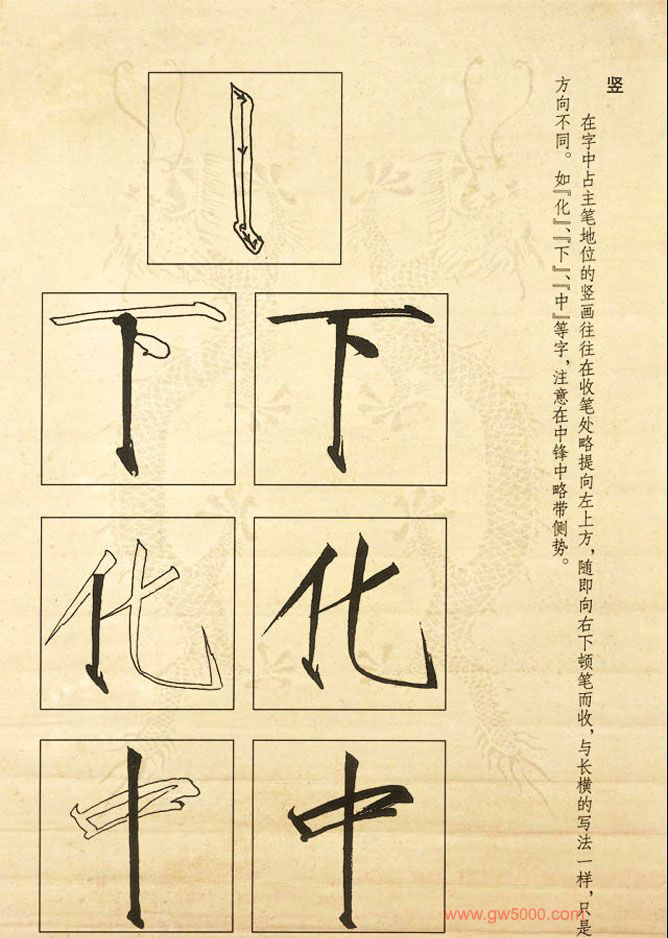 竖
在字中占主笔地位的竖画往往在收笔处略提向左上方，随即向右下顿笔而收，与长横的写法一样，只是
方向不同。如『化』、『下』、『中』等字，注意在中锋中略带侧势。
下
下
化
化
中
中
www.gw5000.com